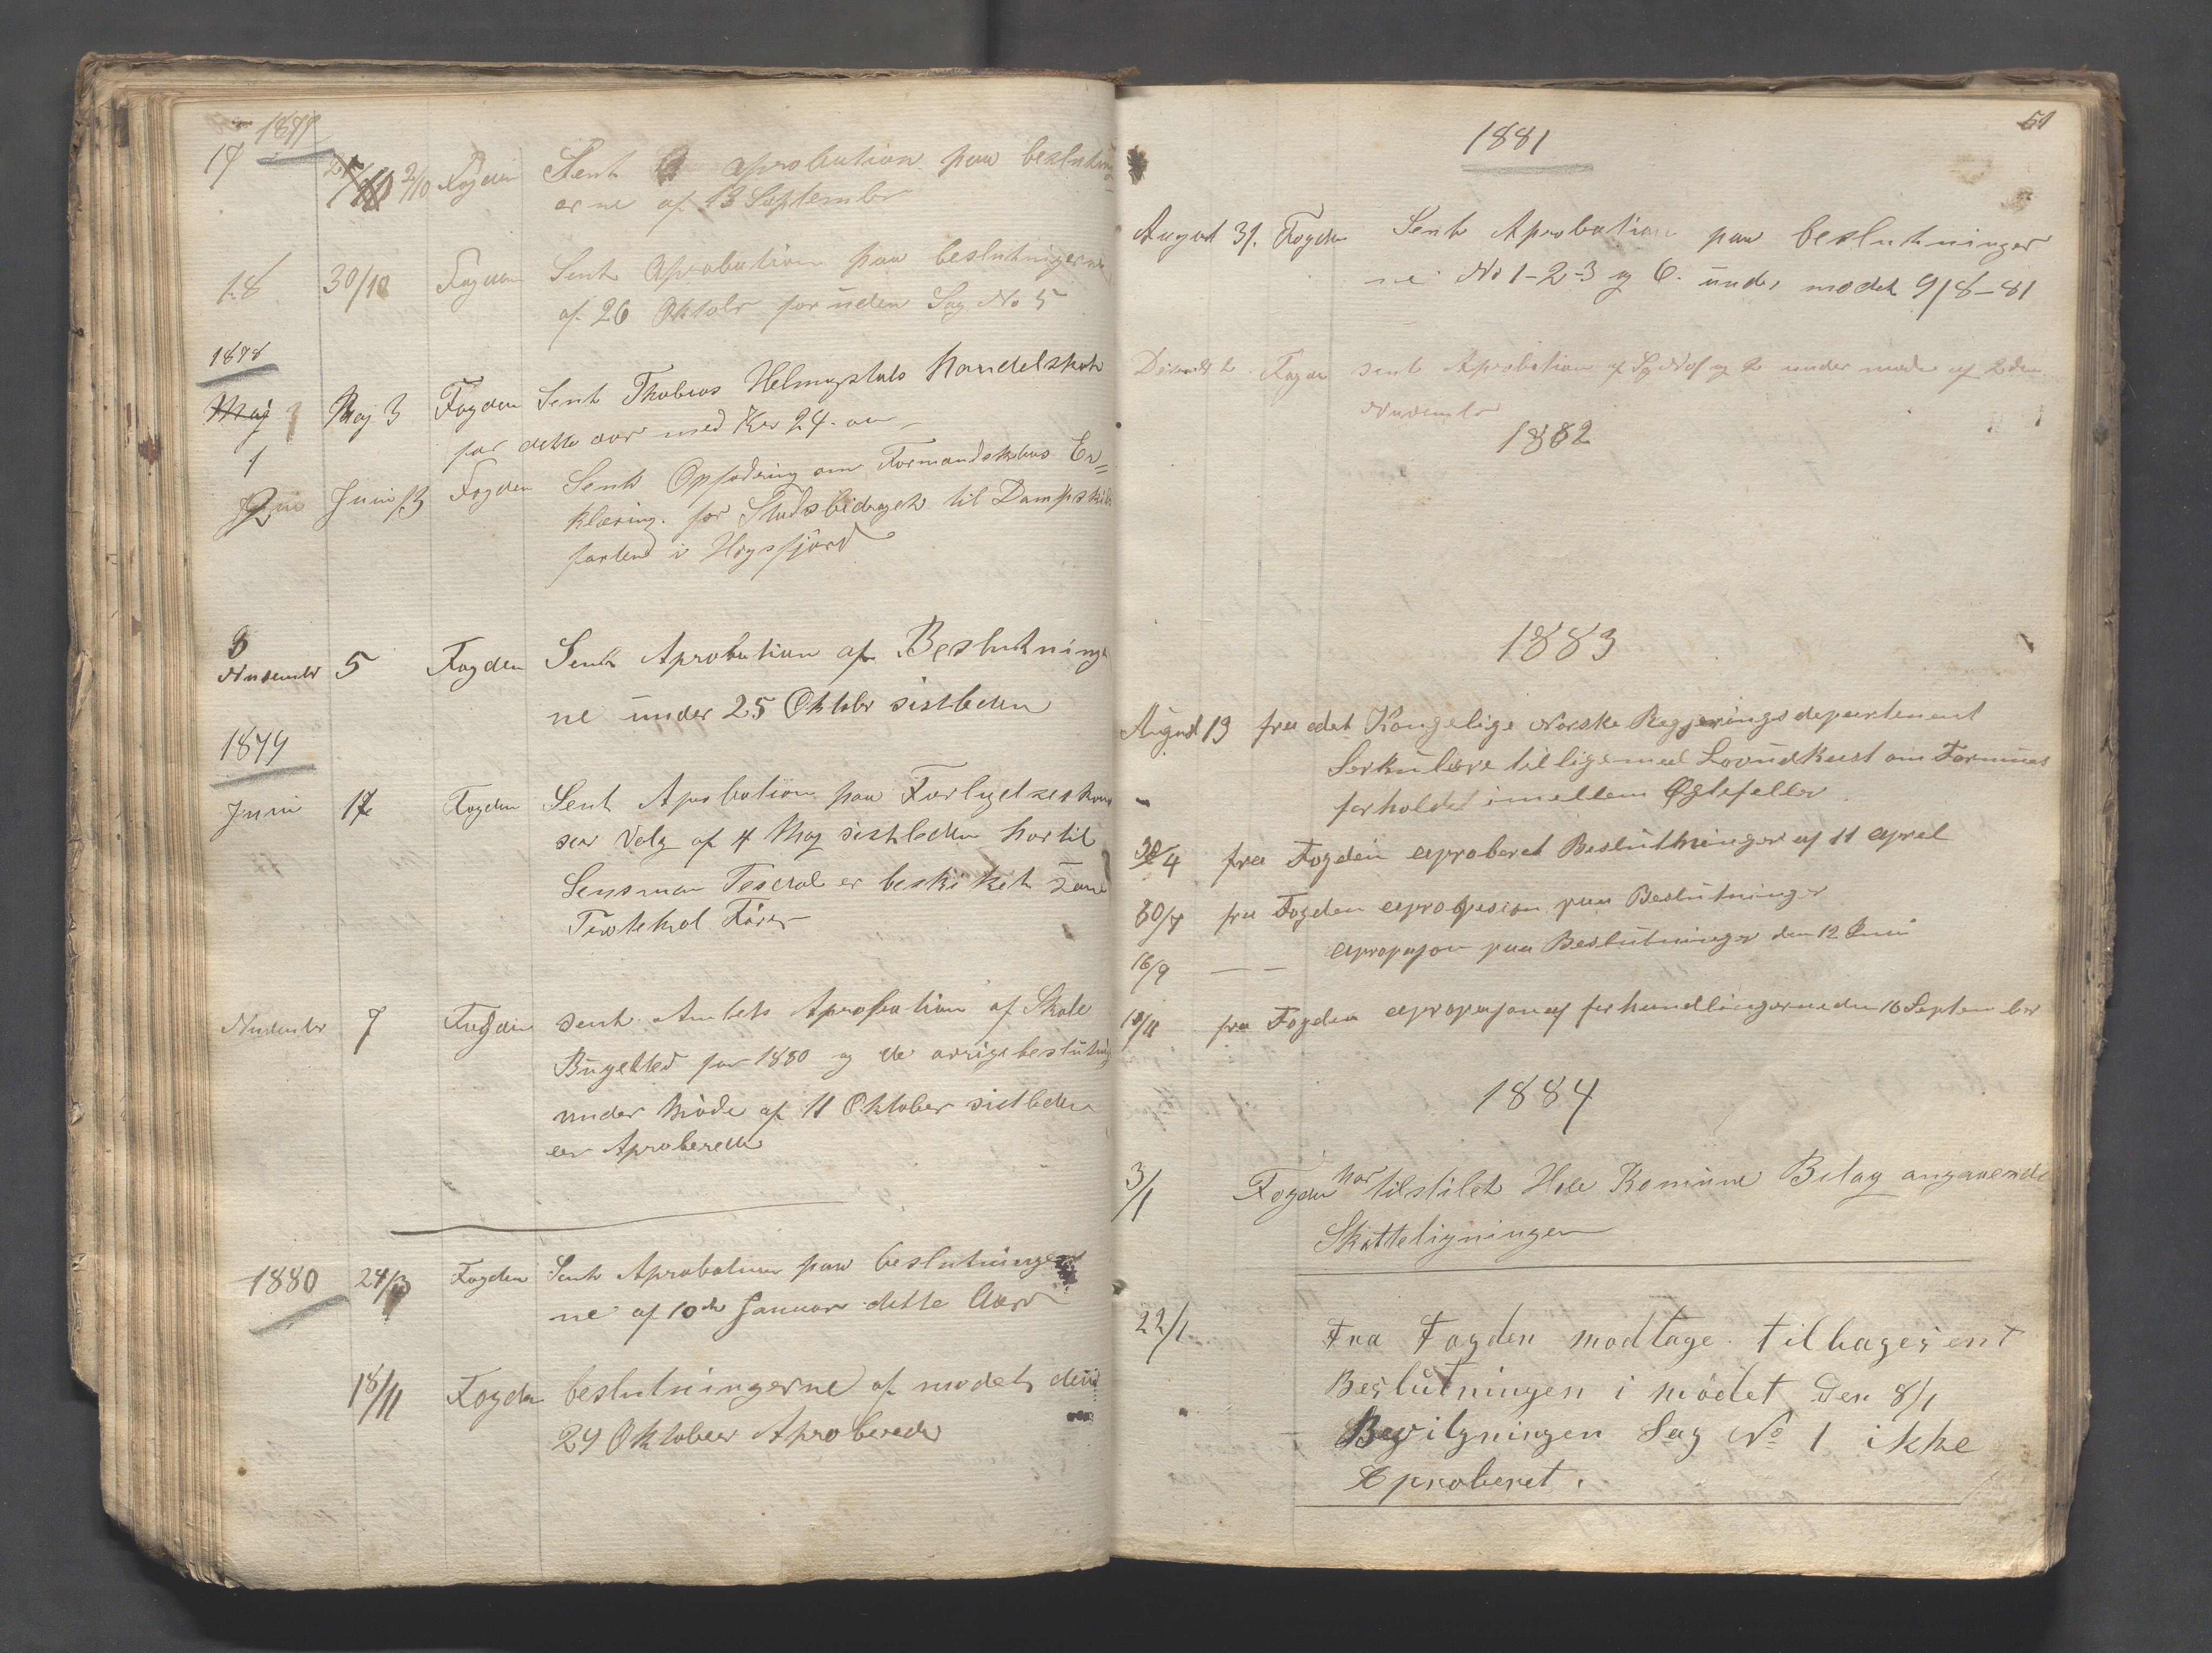 1877
17 2/10 Fogden Sent aprobation paa beslutning
erne af 13 September
18 30/10 Fogden Sent Aprobation paa beslutningerne
af 26 Oktobr for uden Sag No 5
1878
Maj
1 Maj 3 Fogden Sent Thobias Helmigstals Handelskat
for dette aar med Kr 24. aar
2 Juni 13 Fogden Sent Opfodring om Formandskabs Er=
klæring for Stadsbidraget til Dampskibs
farten i Høgsfjord
3
November 5 Fogden Sent Aprobation af Beslutninge
ne under 25 Oktobr sistleden
1879
Juni 17 Fogden Sent Aprobation paa Forligelseskom
sær Valg af 4 Maj sistleden hortil
Lensman Tesdal er beskiket som
Protokol Fører
November 7 Fogden sent Amtets Aprobation af Skole
Bugetted for 1880 og de øvrige beslutning
under Møde af 11 Oktober sistleden
er Aproberede
1880 24/3 Fogden Sent Aprobation paa beslutninger
ne af 10de Januar dette Aar
18/11 Fogden beslutningerne af mødet den
29 Oktober Aproberede
51
1881
August 31. Fogden Sent Aprobation paa beslutninger
ne No 1-2-3 og 6. under mødet 9/8-81
Fogden sent Aprobation af Sag No 1 og 2 under møde af 2den
November
1882
1883
August 19 fra det Kongelige Norske Regjerings departement
Serkulære tilligemed Lovudkast om Formues
forholdet imellem Ægtefeller
30/4 fra Fogden aproberet Beslutninger af 11 April
30/7 fra Fogden apropasion paa Beslutninger
16/9 — — apropasjon paa Beslutninger den 12 Juni
18/11 fra Fogden apropasjon af forhandlingerne den 16 September
1884
3/1 Fogden har tilstilet Hole Komune Bilag angaaende
Skatteligningen
22/1 Fra Fogden modtage tilbagesent
Beslutningen i mødet den 8/1
Bevilgningen Sag No 1 ikke
Aproberet.